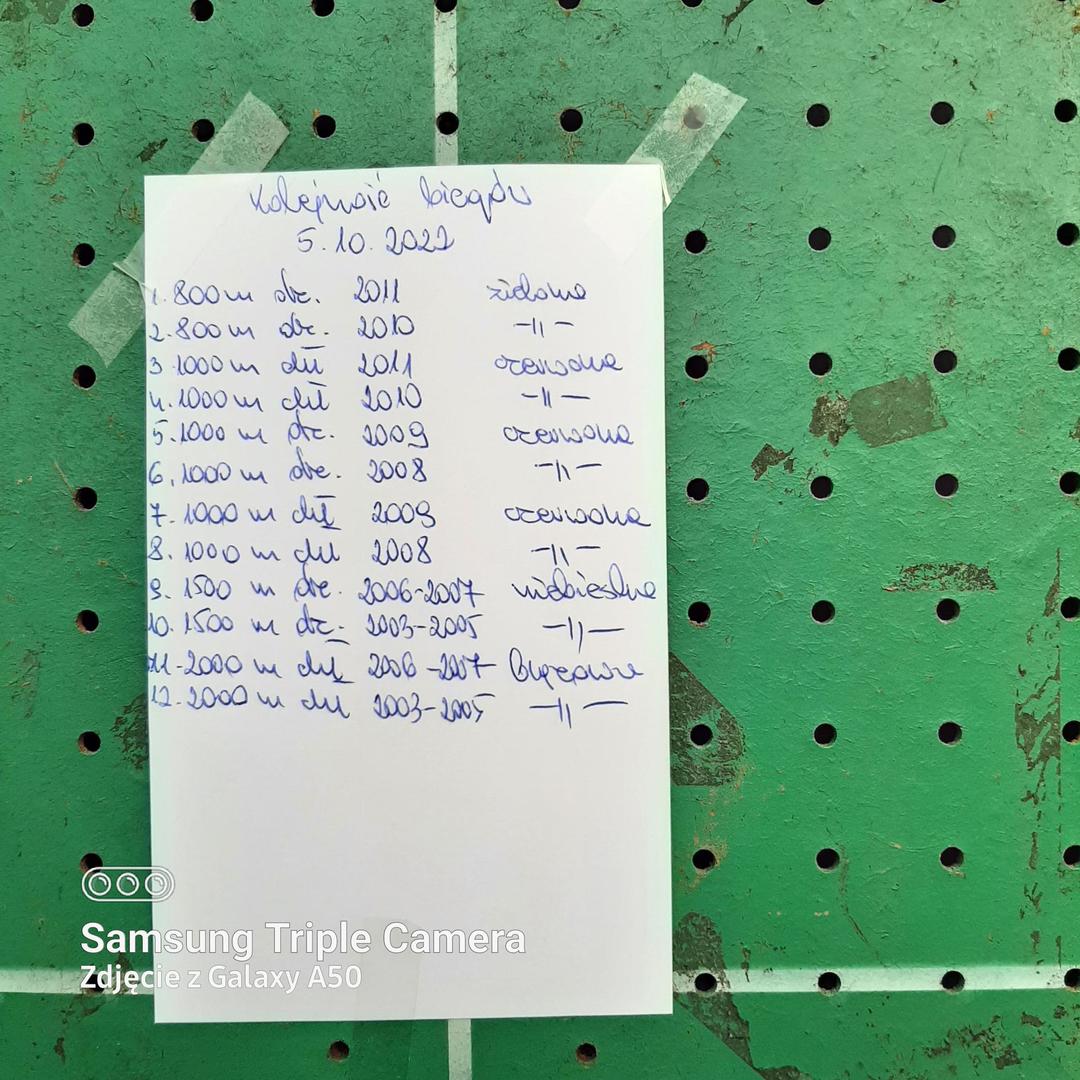 Kolejność biegów
5.10.2022
1. 800 m dz. 2011 zielona
2. 800 m dz. 2010 -||-
3. 1000 m chł 2011 czerwona
4. 1000 m chł 2010 -||-
5. 1000 m dz. 2009 czerwona
6. 1000 m dz. 2008 -||-
7. 1000 m chł 2009 czerwona
8. 1000 m chł 2008 -||-
9. 1500 m dz. 2006-2007 niebieska
10. 1500 m dz. 2003-2005 -||-
11. 2000 m chł 2006-2007 brązowa
12. 2000 m chł 2003-2005 -||-
Samsung Triple Camera
Zdjęcie z Galaxy A50